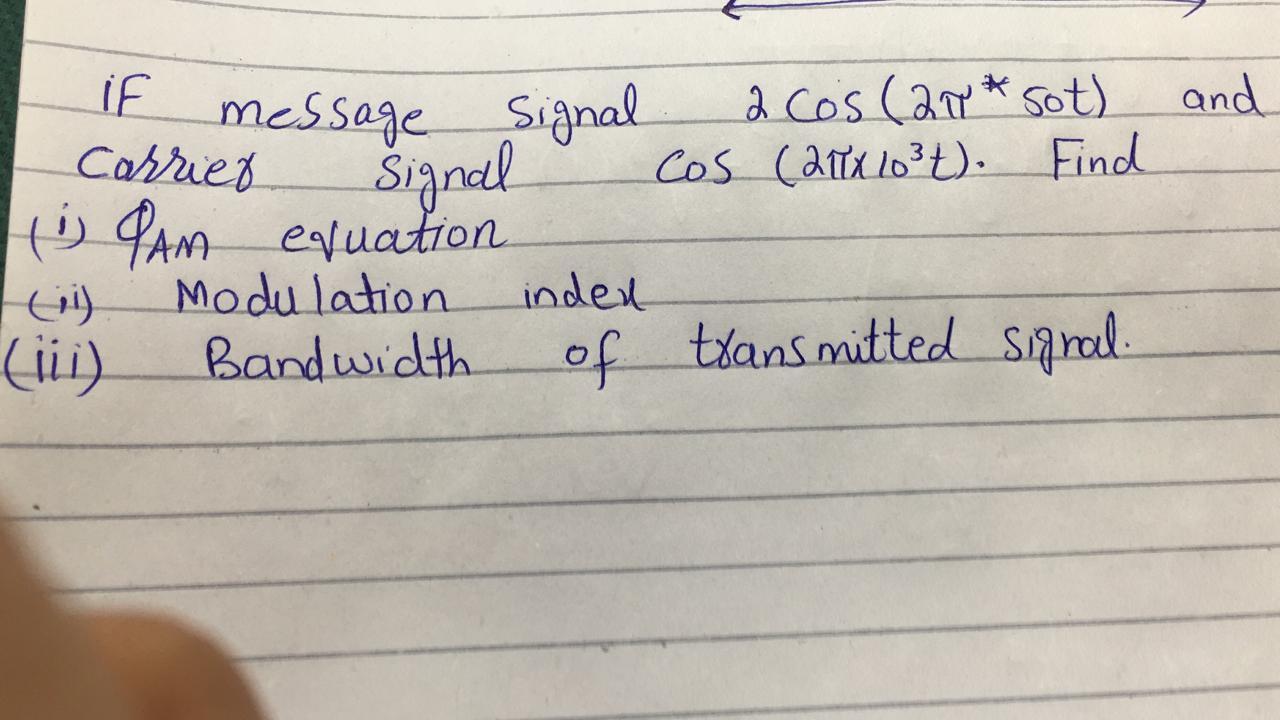 if message signal 2 cos (2π * 50t) and
carrier signal cos (2π x 10³t). Find
(i) φAM equation
(ii) Modulation index
(iii) Bandwidth of transmitted signal.